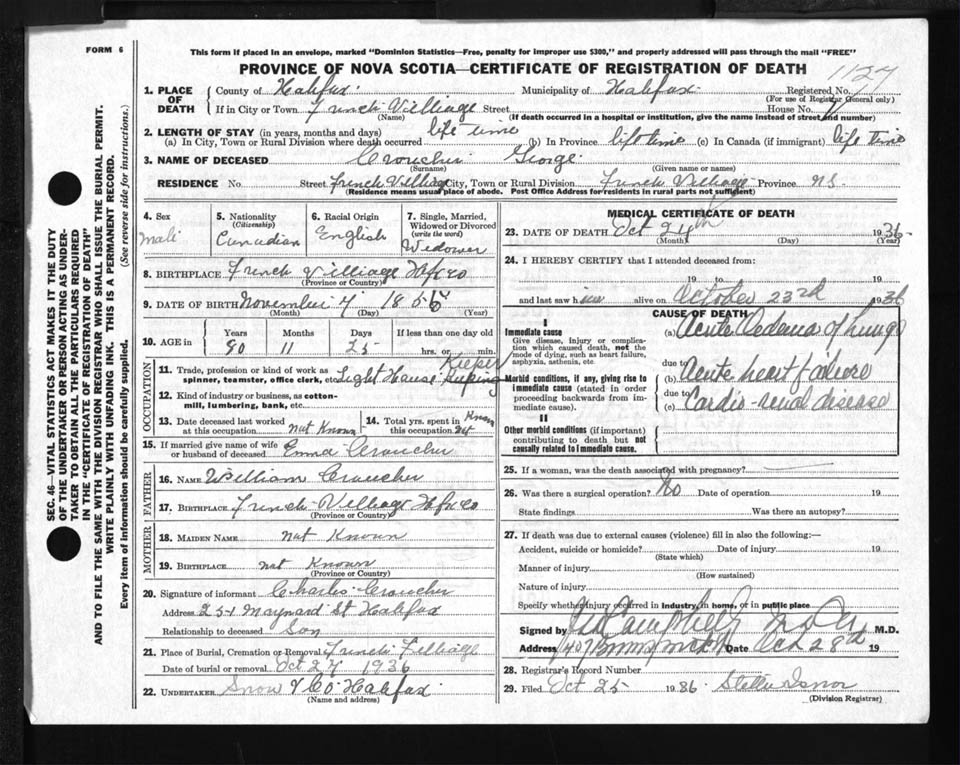 FORM 6
This form if placed in an envelope, marked "Dominion Statistics—Free, penalty for improper use $300," and properly addressed will pass through the mail "FREE"
PROVINCE OF NOVA SCOTIA—CERTIFICATE OF REGISTRATION OF DEATH
1127
1. PLACE OF DEATH
County of Halifax Municipality of Halifax Registered No.
(For use of Registrar General only)
If in City or Town French Villiage Street House No.
(Name) (If death occurred in a hospital or institution, give the name instead of street and number)
2. LENGTH OF STAY (in years, months and days)
(a) In City, Town or Rural Division where death occurred life time (b) In Province life time (c) In Canada (if immigrant) life time
3. NAME OF DECEASED Croucher George
(Surname) (Given name or names)
RESIDENCE No. Street French Villiage City, Town or Rural Division French Villiage Province N.S.
(Residence means usual place of abode. Post Office Address for residents in rural parts not sufficient)
4. Sex male
5. Nationality (Citizenship) Canadian
6. Racial Origin English
7. Single, Married, Widowed or Divorced (write the word) Widower
8. BIRTHPLACE French Villiage Hfx Co
(Province or Country)
9. DATE OF BIRTH November 185
(Month) (Day) (Year)
10. AGE in Years Months Days If less than one day old
90 11 25 hrs. or min.
OCCUPATION
11. Trade, profession or kind of work as spinner, teamster, office clerk, etc. Light House Keeper
12. Kind of industry or business, as cotton-mill, lumbering, bank, etc.
13. Date deceased last worked at this occupation not Known
14. Total yrs. spent in this occupation not Known
15. If married give name of wife or husband of deceased Emma Croucher
FATHER
16. NAME William Croucher
17. BIRTHPLACE French Villiage Hfx Co
(Province or Country)
MOTHER
18. MAIDEN NAME not Known
19. BIRTHPLACE not Known
(Province or Country)
20. Signature of informant Charles Croucher
Address 251 Maynard St Halifax
Relationship to deceased Son
21. Place of Burial, Cremation or Removal French Villiage
Date of burial or removal Oct 27 1936
22. UNDERTAKER Snow & Co Halifax
(Name and address)
MEDICAL CERTIFICATE OF DEATH
23. DATE OF DEATH Oct 24th 1936
(Month) (Day) (Year)
24. I HEREBY CERTIFY that I attended deceased from:
19 to 19
and last saw him alive on October 23rd 1936
CAUSE OF DEATH
I
Immediate cause
Give disease, injury or complication which caused death, not the mode of dying, such as heart failure, asphyxia, asthenia, etc.
(a) Acute Oedema of lungs
due to
Morbid conditions, if any, giving rise to immediate cause (stated in order proceeding backwards from immediate cause).
(b) Acute heart failure
due to
(c) Cardio-renal disease
II
Other morbid conditions (if important) contributing to death but not causally related to immediate cause.
25. If a woman, was the death associated with pregnancy?
26. Was there a surgical operation? No Date of operation 19
State findings Was there an autopsy?
27. If death was due to external causes (violence) fill in also the following:—
Accident, suicide or homicide? Date of injury 19
(State which)
Manner of injury
(How sustained)
Nature of injury
Specify whether injury occurred in Industry, in home, or in public place
Signed by Campbell M.D.
Address Date Oct 28th 19
28. Registrar's Record Number
29. Filed Oct 25 1936 Stella Isnor
(Division Registrar)
SEC. 46—VITAL STATISTICS ACT MAKES IT THE DUTY
OF THE UNDERTAKER OR PERSON ACTING AS UNDER-
TAKER TO OBTAIN ALL THE PARTICULARS REQUIRED
IN THE "CERTIFICATE OF REGISTRATION OF DEATH"
AND TO FILE THE SAME WITH THE DIVISION REGISTRAR WHO SHALL ISSUE THE BURIAL PERMIT.
WRITE PLAINLY WITH UNFADING INK. THIS IS A PERMANENT RECORD.
Every item of information should be carefully supplied. (See reverse side for instructions.)